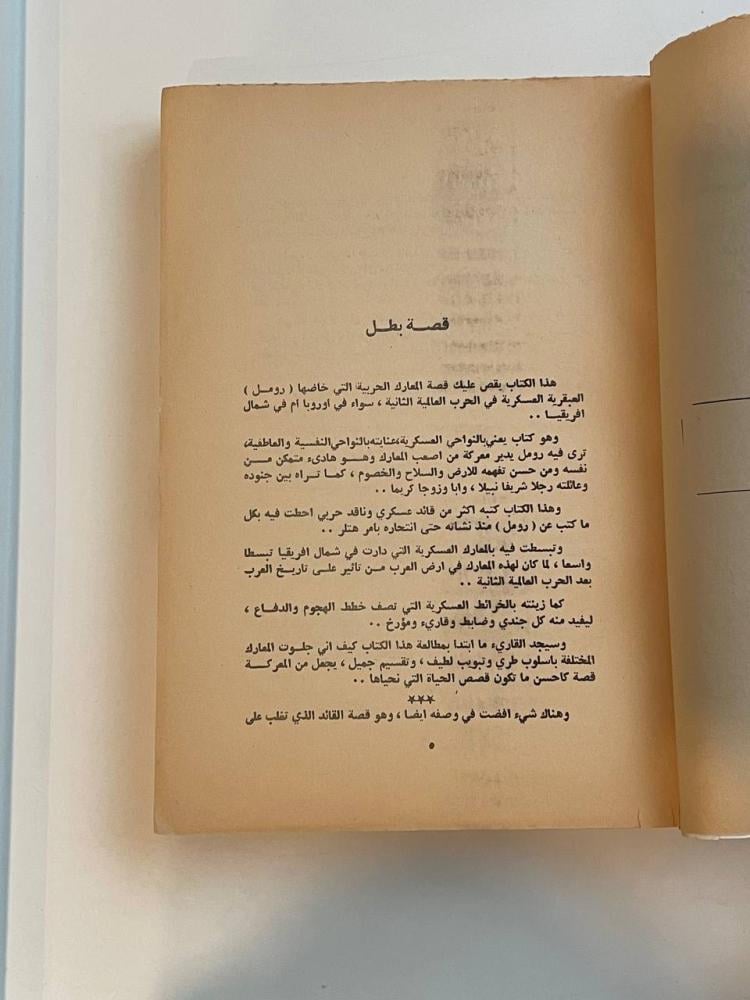 قصة بطل
هذا الكتاب يقص عليك قصة المعارك الحربية التي خاضها ( رومل )
العبقرية العسكرية في الحرب العالمية الثانية ، سواء في اوروبا أم في شمال
افريقيا . .
وهو كتاب يعني بالنواحي العسكرية، عنايته بالنواحي النفسية والعاطفية،
ترى فيه رومل يدير معركة من اصعب المعارك وهو هادىء متمكن من
نفسه ومن حسن تفهمه للارض والسلاح والخصوم ، كما تراه بين جنوده
وعائلته رجلا شريفا نبيلا ، وابا وزوجا كريما . .
وهذا الكتاب كتبه اكثر من قائد عسكري وناقد حربي احطت فيه بكل
ما كتب عن ( رومل ) منذ نشاته حتى انتحاره بامر هتلر . .
وتبسطت فيه بالمعارك العسكرية التي دارت في شمال افريقيا تبسطا
واسعا ، لما كان لهذه المعارك في ارض العرب من تاثير على تاريخ العرب
بعد الحرب العالمية الثانية . .
كما زينته بالخرائط العسكرية التي تصف خطط الهجوم والدفاع ،
ليفيد منه كل جندي وضابط وقاريء ومؤرخ . .
وسيجد القاريء ما ابتدا بمطالعة هذا الكتاب كيف اني جلوت المعارك
المختلفة باسلوب طري وتبويب لطيف ، وتقسيم جميل ، يجعل من المعركة
قصة كاحسن ما تكون قصص الحياة التي نحياها . .
***
وهناك شيء افضت في وصفه ايضا ، وهو قصة القائد الذي تغلب على
٥